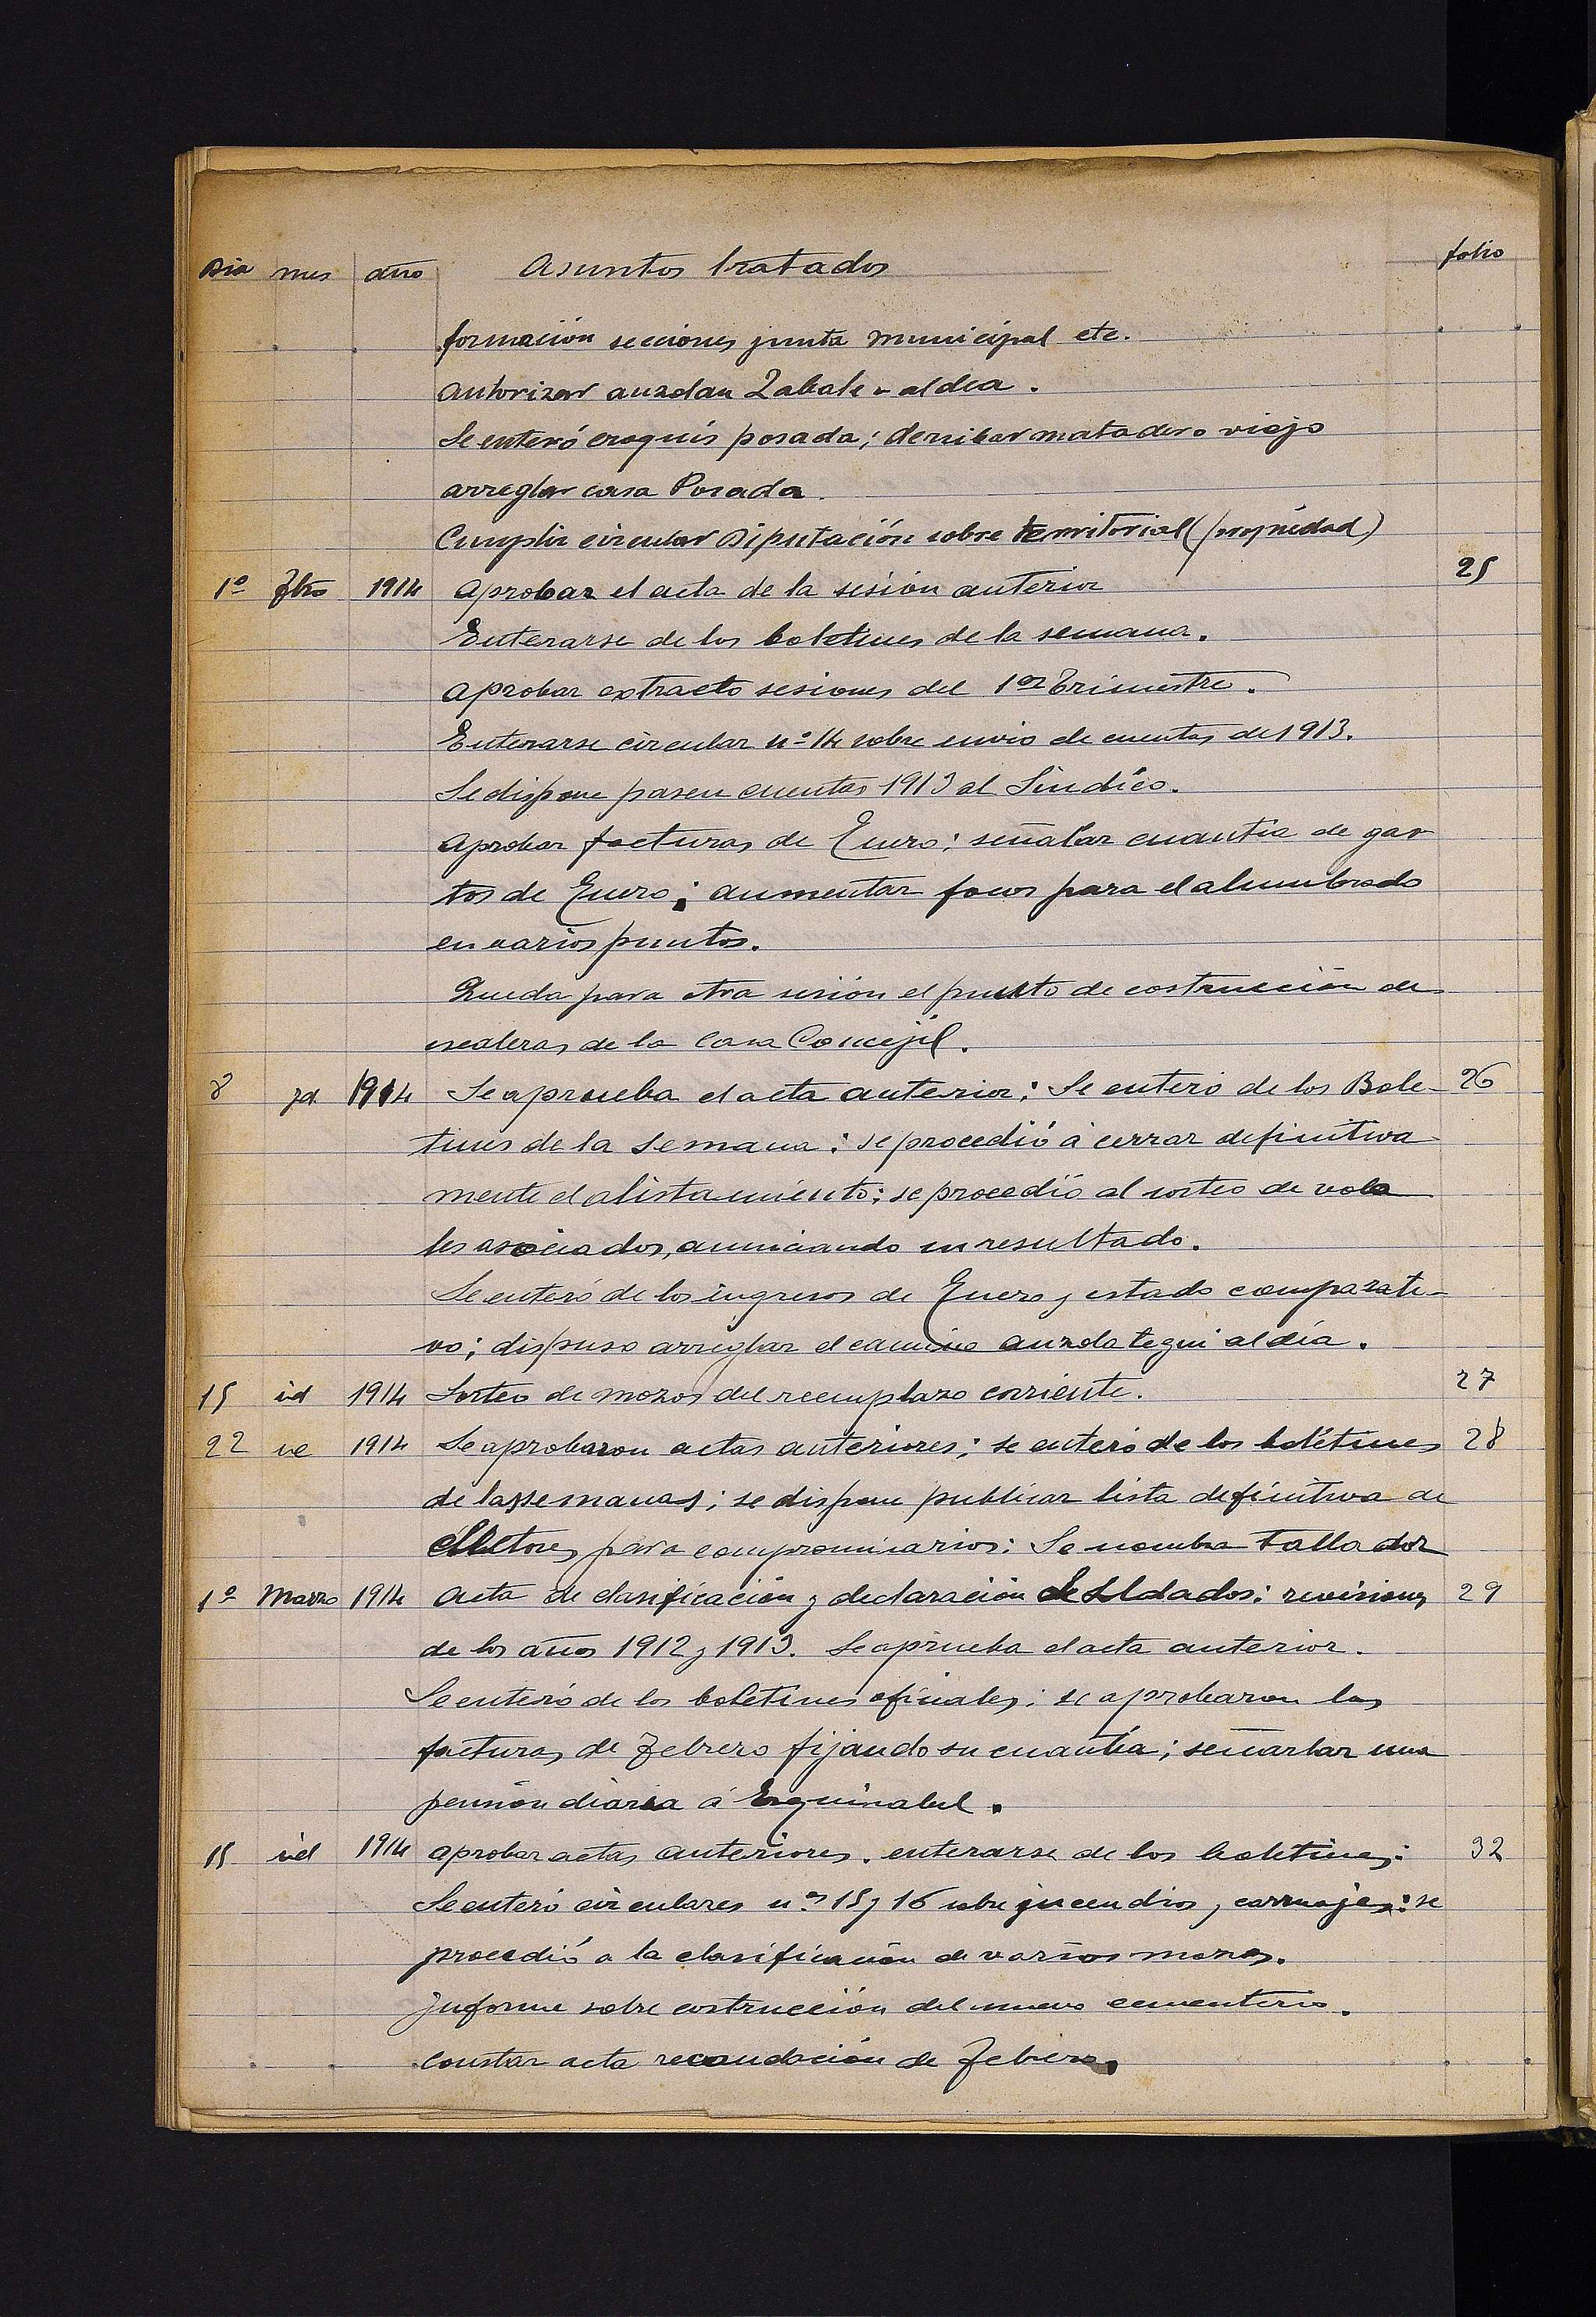 Dia mes año Asuntos tratados folio
formación secciones junta municipal etc.
autorizar auzolan Zabale aldea.
Se enteró croquis posada; derribar matadero viejo
arreglar casa Posada.
Cumplir circular Diputación sobre territorial (propiedad)
1º Fbro 1914 Aprobar el acta de la sesión anterior 25
Enterarse de los boletines de la semana.
Aprobar extracto sesiones del 1er trimestre.
Enterarse circular nº 14 sobre envio de cuentas de 1913.
Se dispone pasen cuentas 1913 al Sindico.
Aprobar facturas de Enero; señalar cuantia de gas
tos de Enero; aumentar focos para el alumbrado
en varios puntos.
Queda para otra sesión el punto de costrucción de
escaleras de la Casa Concejil.
8 id. 1914 Se aprueba el acta anterior; Se enteró de los Bole- 26
tines de la semana; se procedió á cerrar definitiva
mente el alistamiento; se procedió al sorteo de voca
les asociados, anunciando su resultado.
Se enteró de los ingresos de Enero y estado comparati-
vo; dispuso arreglar el camino auzolategui aldía.
15 id 1914 Sorteo de mozos del reemplazo corriente. 27
22 id 1914 Se aprobaron actas anteriores; se enteró de los boletines 28
de las semanas; se dispone publicar lista definitiva de
electores para compromisarios: Se nombra Tallador
1º Marzo 1914 Acta de clasificación y declaración de soldados: revisiones 29
de los años 1912 y 1913. Se aprueba el acta anterior.
Se enteró de los boletines oficiales; se aprobaron las
facturas de Febrero fijando su cuantía; señarlar una
pensión diaria á Erguinabel.
15 id 1914 aprobar actas anteriores. enterarse de los boletines; 32
Se enteró circulares nos 15 y 16 sobre incendios y carruajes; se
procedió a la clasificación de varios mozos.
Informe sobre costrucción del nuevo cementerio.
Constar acta recaudación de Febrero.